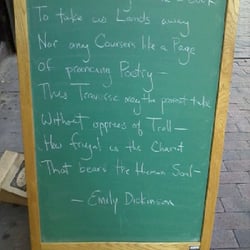 a Book
To take us Lands away
Nor any Coursers like a Page
of prancing Poetry –
This Traverse may the poorest take
Without oppress of Toll –
How frugal is the Chariot
That bears the Human Soul –
– Emily Dickinson